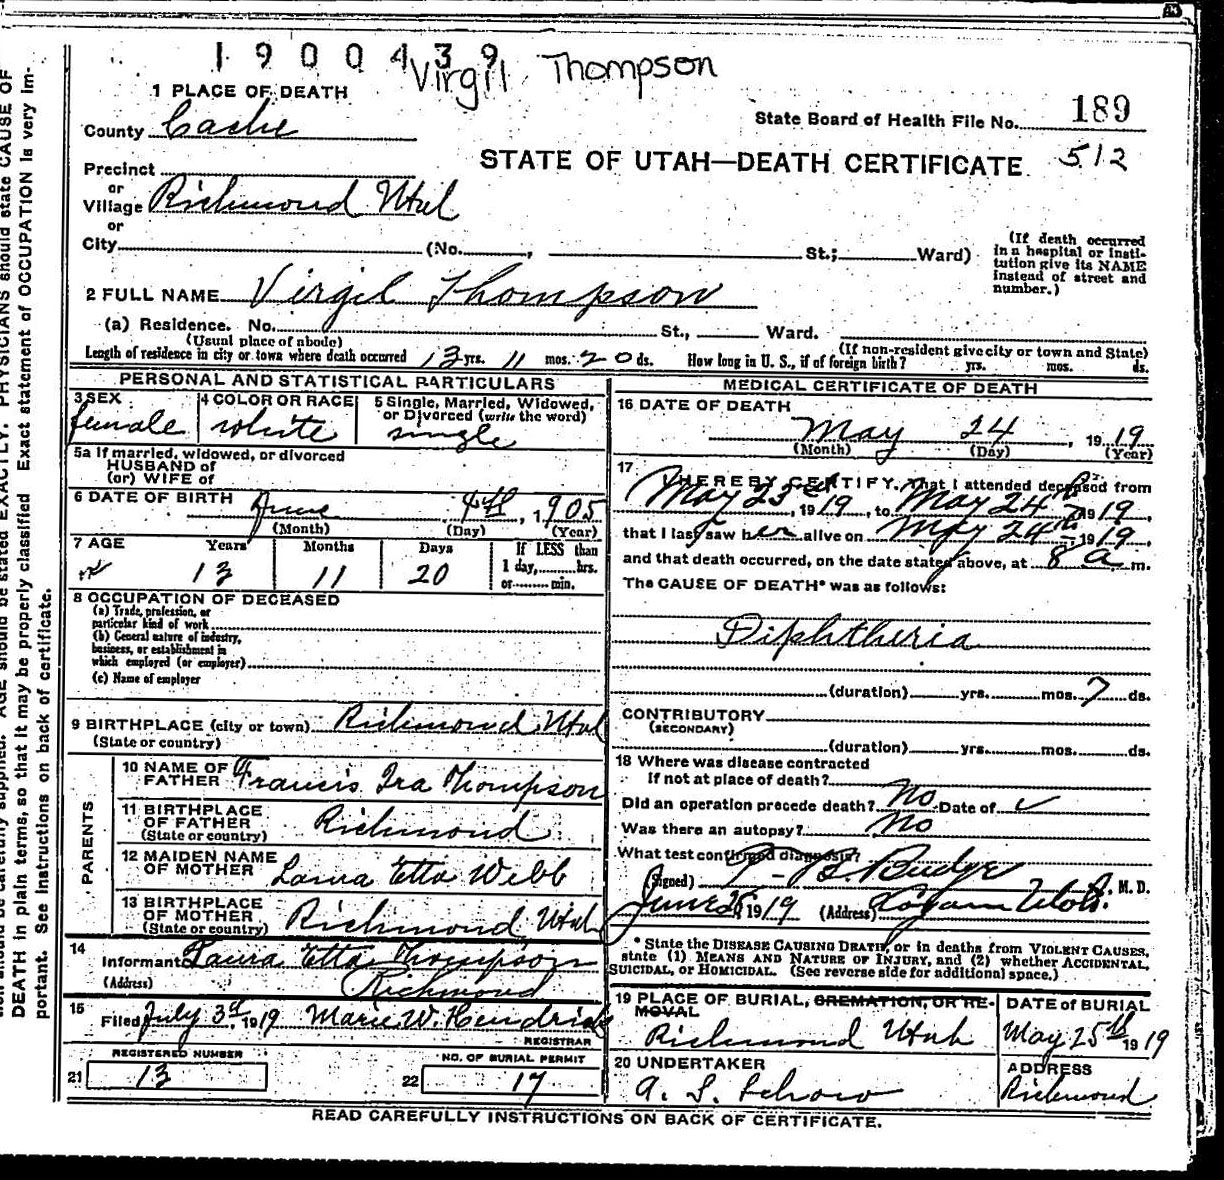 1900439
Virgil Thompson
1 PLACE OF DEATH
County Cache
State Board of Health File No. 189
512
STATE OF UTAH—DEATH CERTIFICATE
Precinct
or
Village Richmond Utah
or
City (No. , St.; Ward)
(If death occurred in a hospital or institution give its NAME instead of street and number.)
2 FULL NAME Virgil Thompson
(a) Residence. No. St., Ward.
(Usual place of abode) (If non-resident give city or town and State)
Length of residence in city or town where death occurred 13 yrs. 11 mos. 20 ds. How long in U. S., if of foreign birth? yrs. mos. ds.
PERSONAL AND STATISTICAL PARTICULARS
3 SEX female
4 COLOR OR RACE white
5 Single, Married, Widowed, or Divorced (write the word) single
5a If married, widowed, or divorced
HUSBAND of
(or) WIFE of
6 DATE OF BIRTH June 4th, 1905
(Month) (Day) (Year)
7 AGE Years Months Days If LESS than
13 11 20 1 day, hrs.
or min.
8 OCCUPATION OF DECEASED
(a) Trade, profession, or
particular kind of work
(b) General nature of industry,
business, or establishment in
which employed (or employer)
(c) Name of employer
9 BIRTHPLACE (city or town) Richmond Utah
(State or country)
PARENTS
10 NAME OF FATHER Francis Ira Thompson
11 BIRTHPLACE OF FATHER (State or country) Richmond
12 MAIDEN NAME OF MOTHER Laura Etta Webb
13 BIRTHPLACE OF MOTHER (State or country) Richmond, Utah
14
Informant Laura Etta Thompson
(Address) Richmond
15
Filed July 3d, 1919 Marie W. Hendricks
REGISTRAR
REGISTERED NUMBER NO. OF BURIAL PERMIT
21 13 22 17
MEDICAL CERTIFICATE OF DEATH
16 DATE OF DEATH
May 24, 1919
(Month) (Day) (Year)
17
I HEREBY CERTIFY, That I attended deceased from
May 23d, 1919, to May 24th, 1919,
that I last saw her alive on May 24th, 1919,
and that death occurred, on the date stated above, at 8 a m.
The CAUSE OF DEATH* was as follows:
Diphtheria
(duration) yrs. mos. 7 ds.
CONTRIBUTORY
(SECONDARY)
(duration) yrs. mos. ds.
18 Where was disease contracted
If not at place of death?
Did an operation precede death? No Date of
Was there an autopsy? No
What test confirmed diagnosis?
(Signed) T. B. Budge, M. D.
June 25, 1919 (Address) Logan Utah.
* State the DISEASE CAUSING DEATH, or in deaths from VIOLENT CAUSES,
state (1) MEANS AND NATURE OF INJURY, and (2) whether ACCIDENTAL,
SUICIDAL, or HOMICIDAL. (See reverse side for additional space.)
19 PLACE OF BURIAL, CREMATION, OR RE-
MOVAL
Richmond Utah
DATE of BURIAL
May 25th 1919
20 UNDERTAKER
ADDRESS
Richmond
READ CAREFULLY INSTRUCTIONS ON BACK OF CERTIFICATE.
DEATH in plain terms, so that it may be properly classified. Exact statement of OCCUPATION is very im-
portant. See instructions on back of certificate.